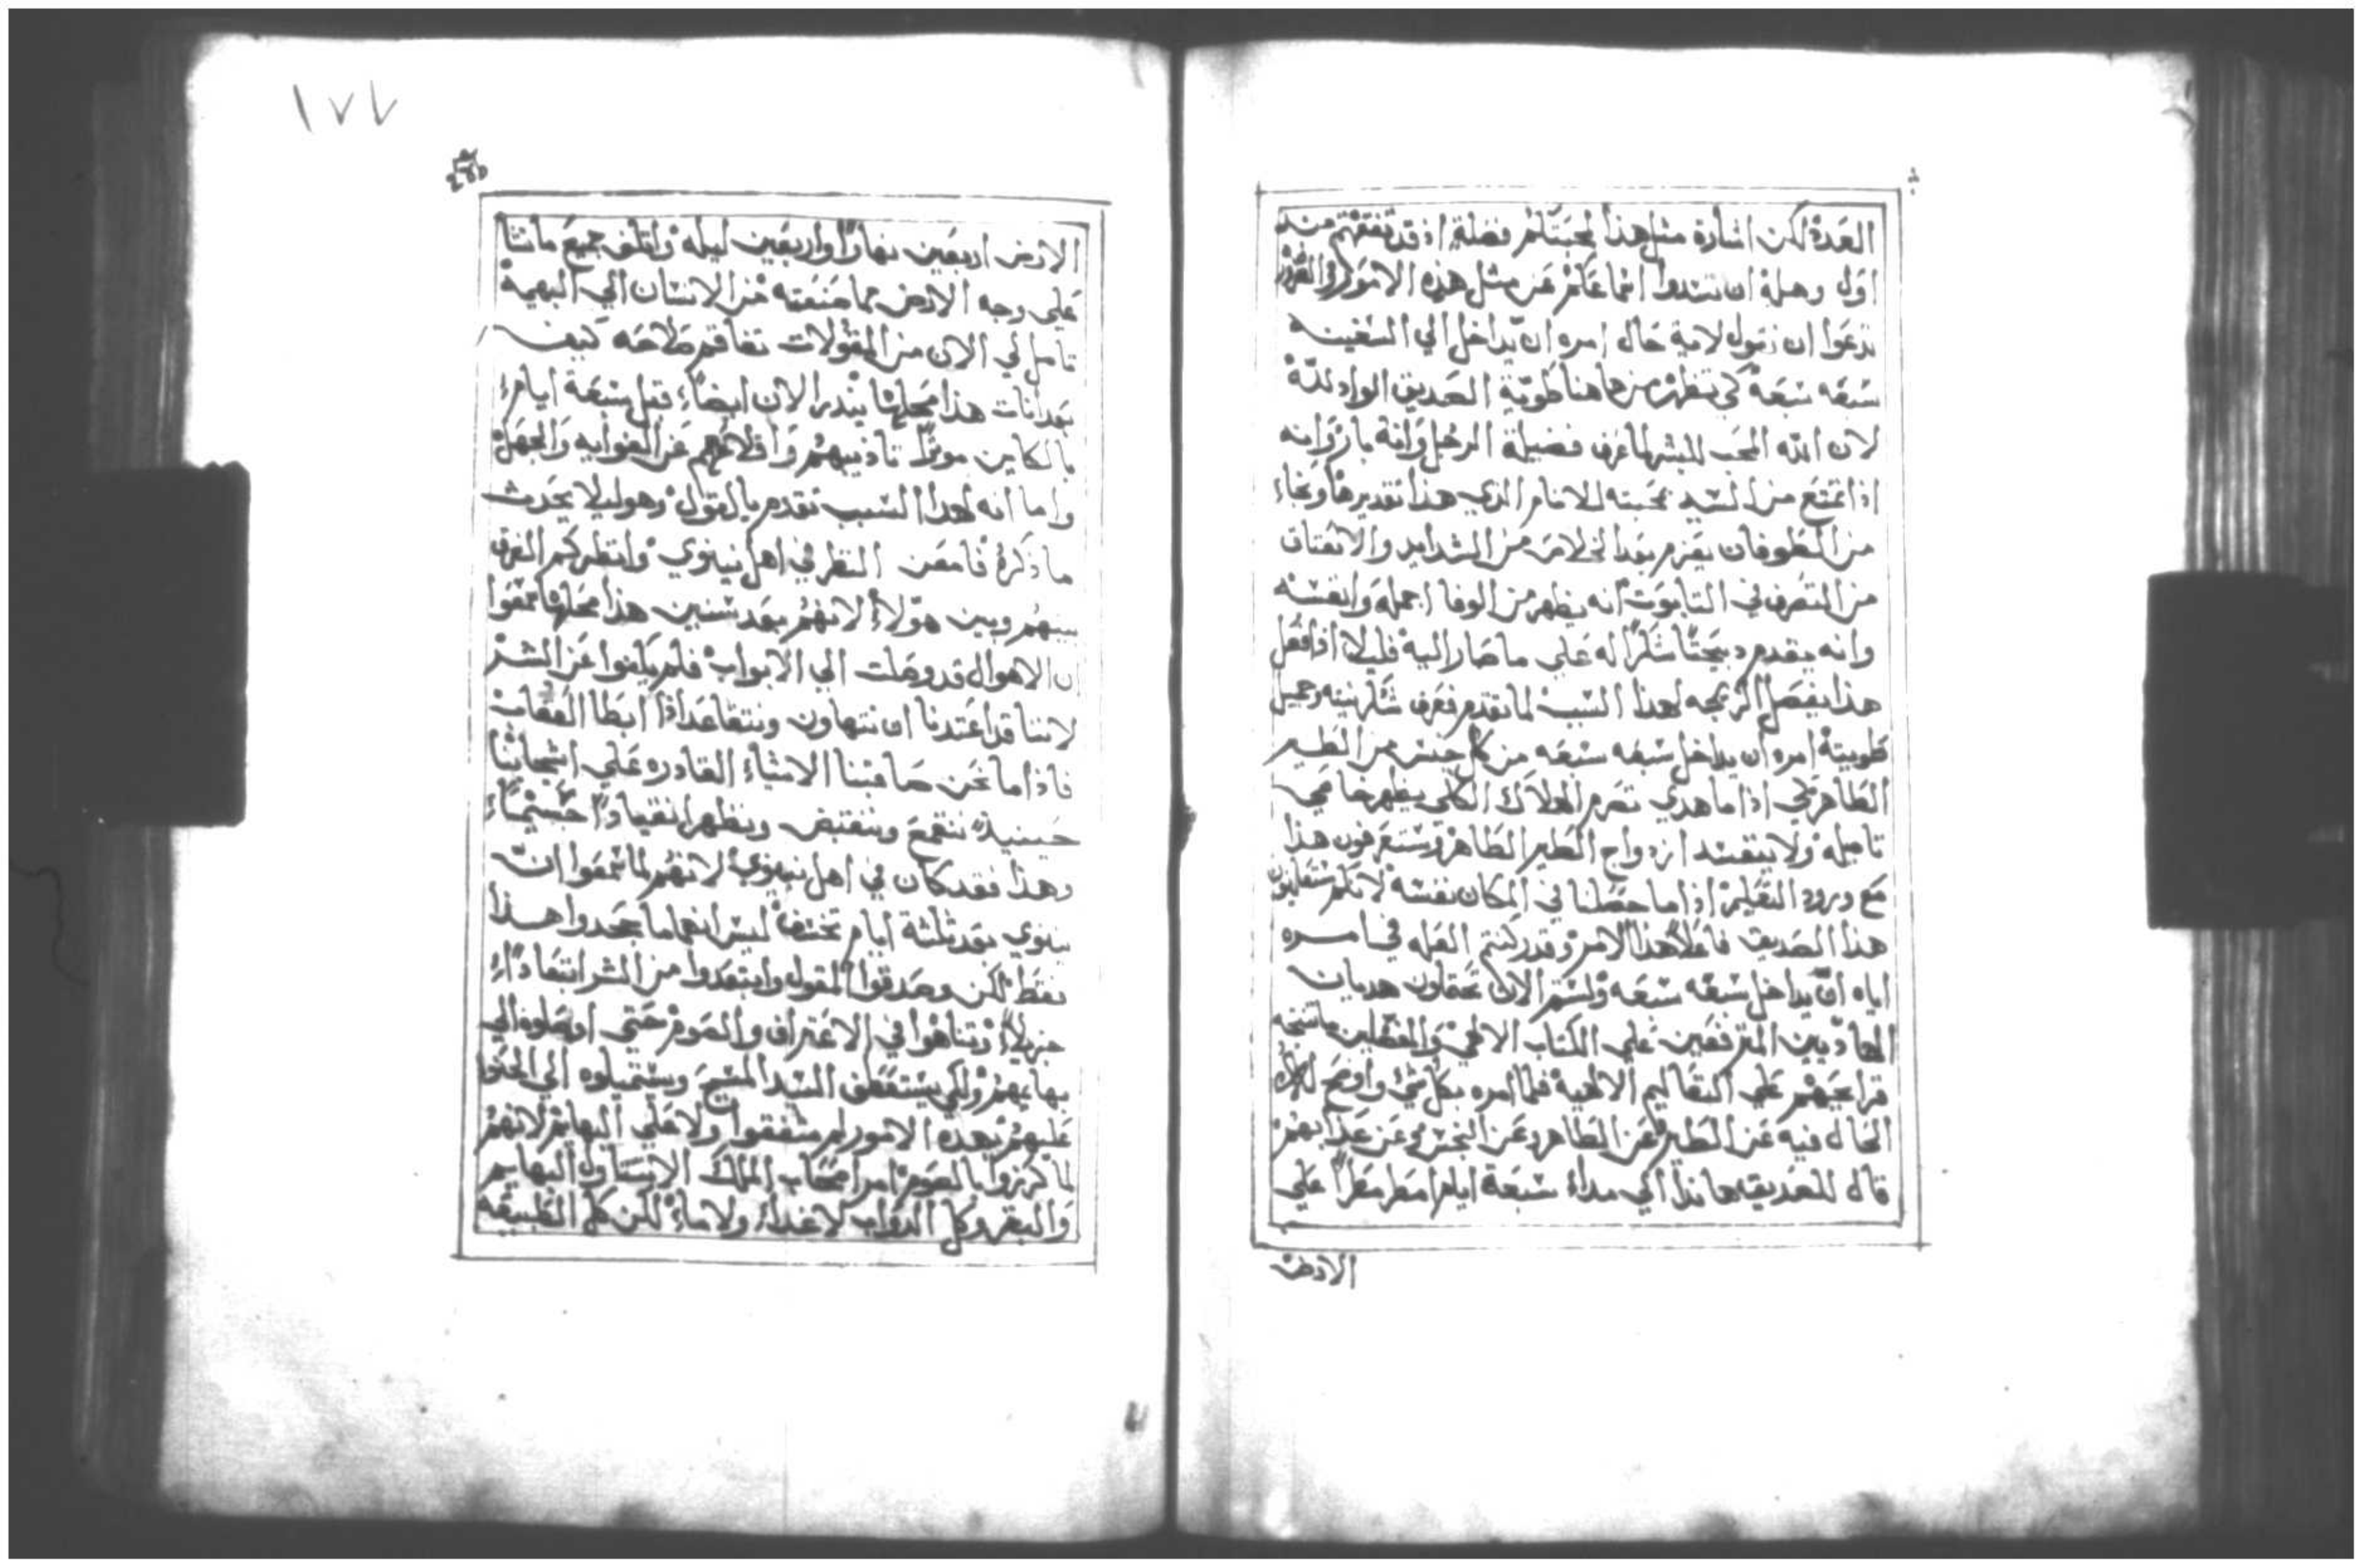 العدة لكن اشارة مثل هذا لمحبتكم فضلة اذ قد تفقهتم منذ
اول وهلة ان تسدوا اسماعكم عن مثل هذه الامور
تزعموا ان نقول لاية حال امره ان يداخل الي السفينه
سبعه سبعة كي تظهر من هاهنا طوية الصديق الواد لله
لان الله المحب للبشر لما عرف فضيلة الرجل وانه بار وانه
اذا تمتع من السيد بمحبته للانام الذي هذا تقديرها ونجاء
من الطوفان يعزم بعد الخلاص من الشدايد والانعتاق
من التصرف في التابوت انه يظهر من الوفا اجمله وانفسه
وانه يقدم دبيحتا شكرا له علي ما صار اليه فليلا اذا فعل
هذا يفصل الزيجه لهذا السبب لما تقدم فعرف شكر نيته وجميل
طويته امره ان يداخل سبعه سبعه من كل جنس من الطير
الطاهر لكي اذا ما هدي تصرم الهلاك الكلي يظهر ما هي
تاميله ولا يفسد ازواج الطير الطاهر وستعرفون هذا
مع ورود التعليم اذا ما حصلنا في المكان نفسه لانكم ستعاينون
هذا الصديق فاعلا هذا الامر وقد ركنتم العله في امره
اياه ان يداخل سبعه سبعه ولستم الان تحفلون هديان
الهاديين المترفعين علي الكتاب الالهي
علي التعاليم الالهية فلما امره بكل شي واوضح له
الحال فيه عن الطير عن الطاهر وعن النجس وعن غدايهم
قال للصديق هانذا الي مداء سبعة ايام امطر مطرا علي
الارض
١٧٧
الارض اربعين نهارا واربعين ليله واتلف جميع ما نشا
علي وجه الارض مما صنعته من الانسان الي البهيمة
تامل لي الان من المقولات تفاقم صلاحه كيف
بعد انات هذا محلها ينذر الان ايضا قبل سبعة ايام
بالكاين موثرا تاديبهم واقلاعهم عن الغوايه والجهل
واما انه لهذا السبب تقدم بالقول وهو ليلا يحدث
ما ذكره فامعن النظر في اهل نينوي وانظر كم الفرق
بينهم وبين هولاء لانهم بعد سنين هذا محلها سمعوا
ان الاهوال قد وصلت الي الابواب فلم يكفوا عن الشر
لاننا قد اعتدنا ان نتهاون ونتقاعد اذا ابطا العقاب
فاذا ما نحن صاقبنا الاشياء القادره علي اشجاننا
حينيذ ننقمع وننقبض ونظهر انقيادا جسيما
وهذا فقد كان في اهل نينوي لانهم لما سمعوا ان
نينوي بعد ثلثة ايام تخسف ليس انهم ما جحدوا هذا
فقط لكن وصدقوا المقول وابتعدوا من الشر ابتعادا
جزيلا وتناهوا في الاعتراف والصوم حتي اوصلوه الي
بهايمهم ولكي يستعطف السيد المسيح ويستميلوه الي الحنو
عليهم بهذه الامور لم يشفقوا ولا علي البهايم لانهم
لما كرزوا بالصوم امر اصحاب الملك الا يتناول البهايم
والبقر وكل الدواب لا غداء ولا ماء لكن كل الطبيعه